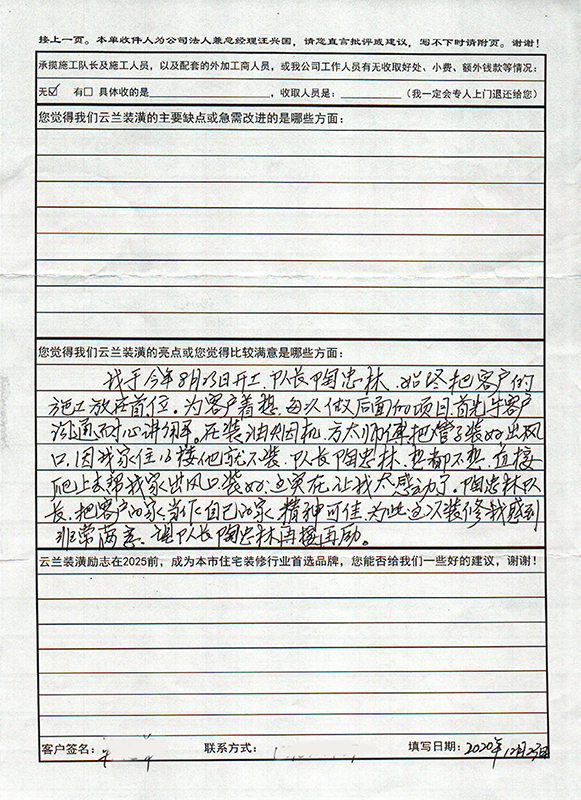 接上一页。本单收件人为公司法人兼总经理汪兴国，请您直言批评或建议，写不下时请附页。谢谢！
承揽施工队长及施工人员，以及配套的外加工商人员，或我公司工作人员有无收取好处、小费、额外钱款等情况：
无☑ 有□ 具体收的是________，收取人员是：________（我一定会专人上门退还给您）
您觉得我们云兰装潢的主要缺点或急需改进的是哪些方面：
您觉得我们云兰装潢的亮点或您觉得比较满意是哪些方面：
我于今年8月23日开工，队长陶忠林，始终把客户的
施工放在首位。为客户着想，每次做后面的项目首先与客户
沟通，耐心讲解。在装油烟机，方太师傅把管子装好出风
口，因我家位12楼他就不装，队长陶忠林，想都不想，直接
爬上去帮我家出风口装好，这实在让我太感动了。陶忠林队
长，把客户的家当作自己的家，精神可佳，为此这次装修我感到
非常满意，谨队长陶忠林再接再励。
云兰装潢励志在2025前，成为本市住宅装修行业首选品牌，您能否给我们一些好的建议，谢谢！
客户签名： 联系方式： 填写日期：2020年12月23日